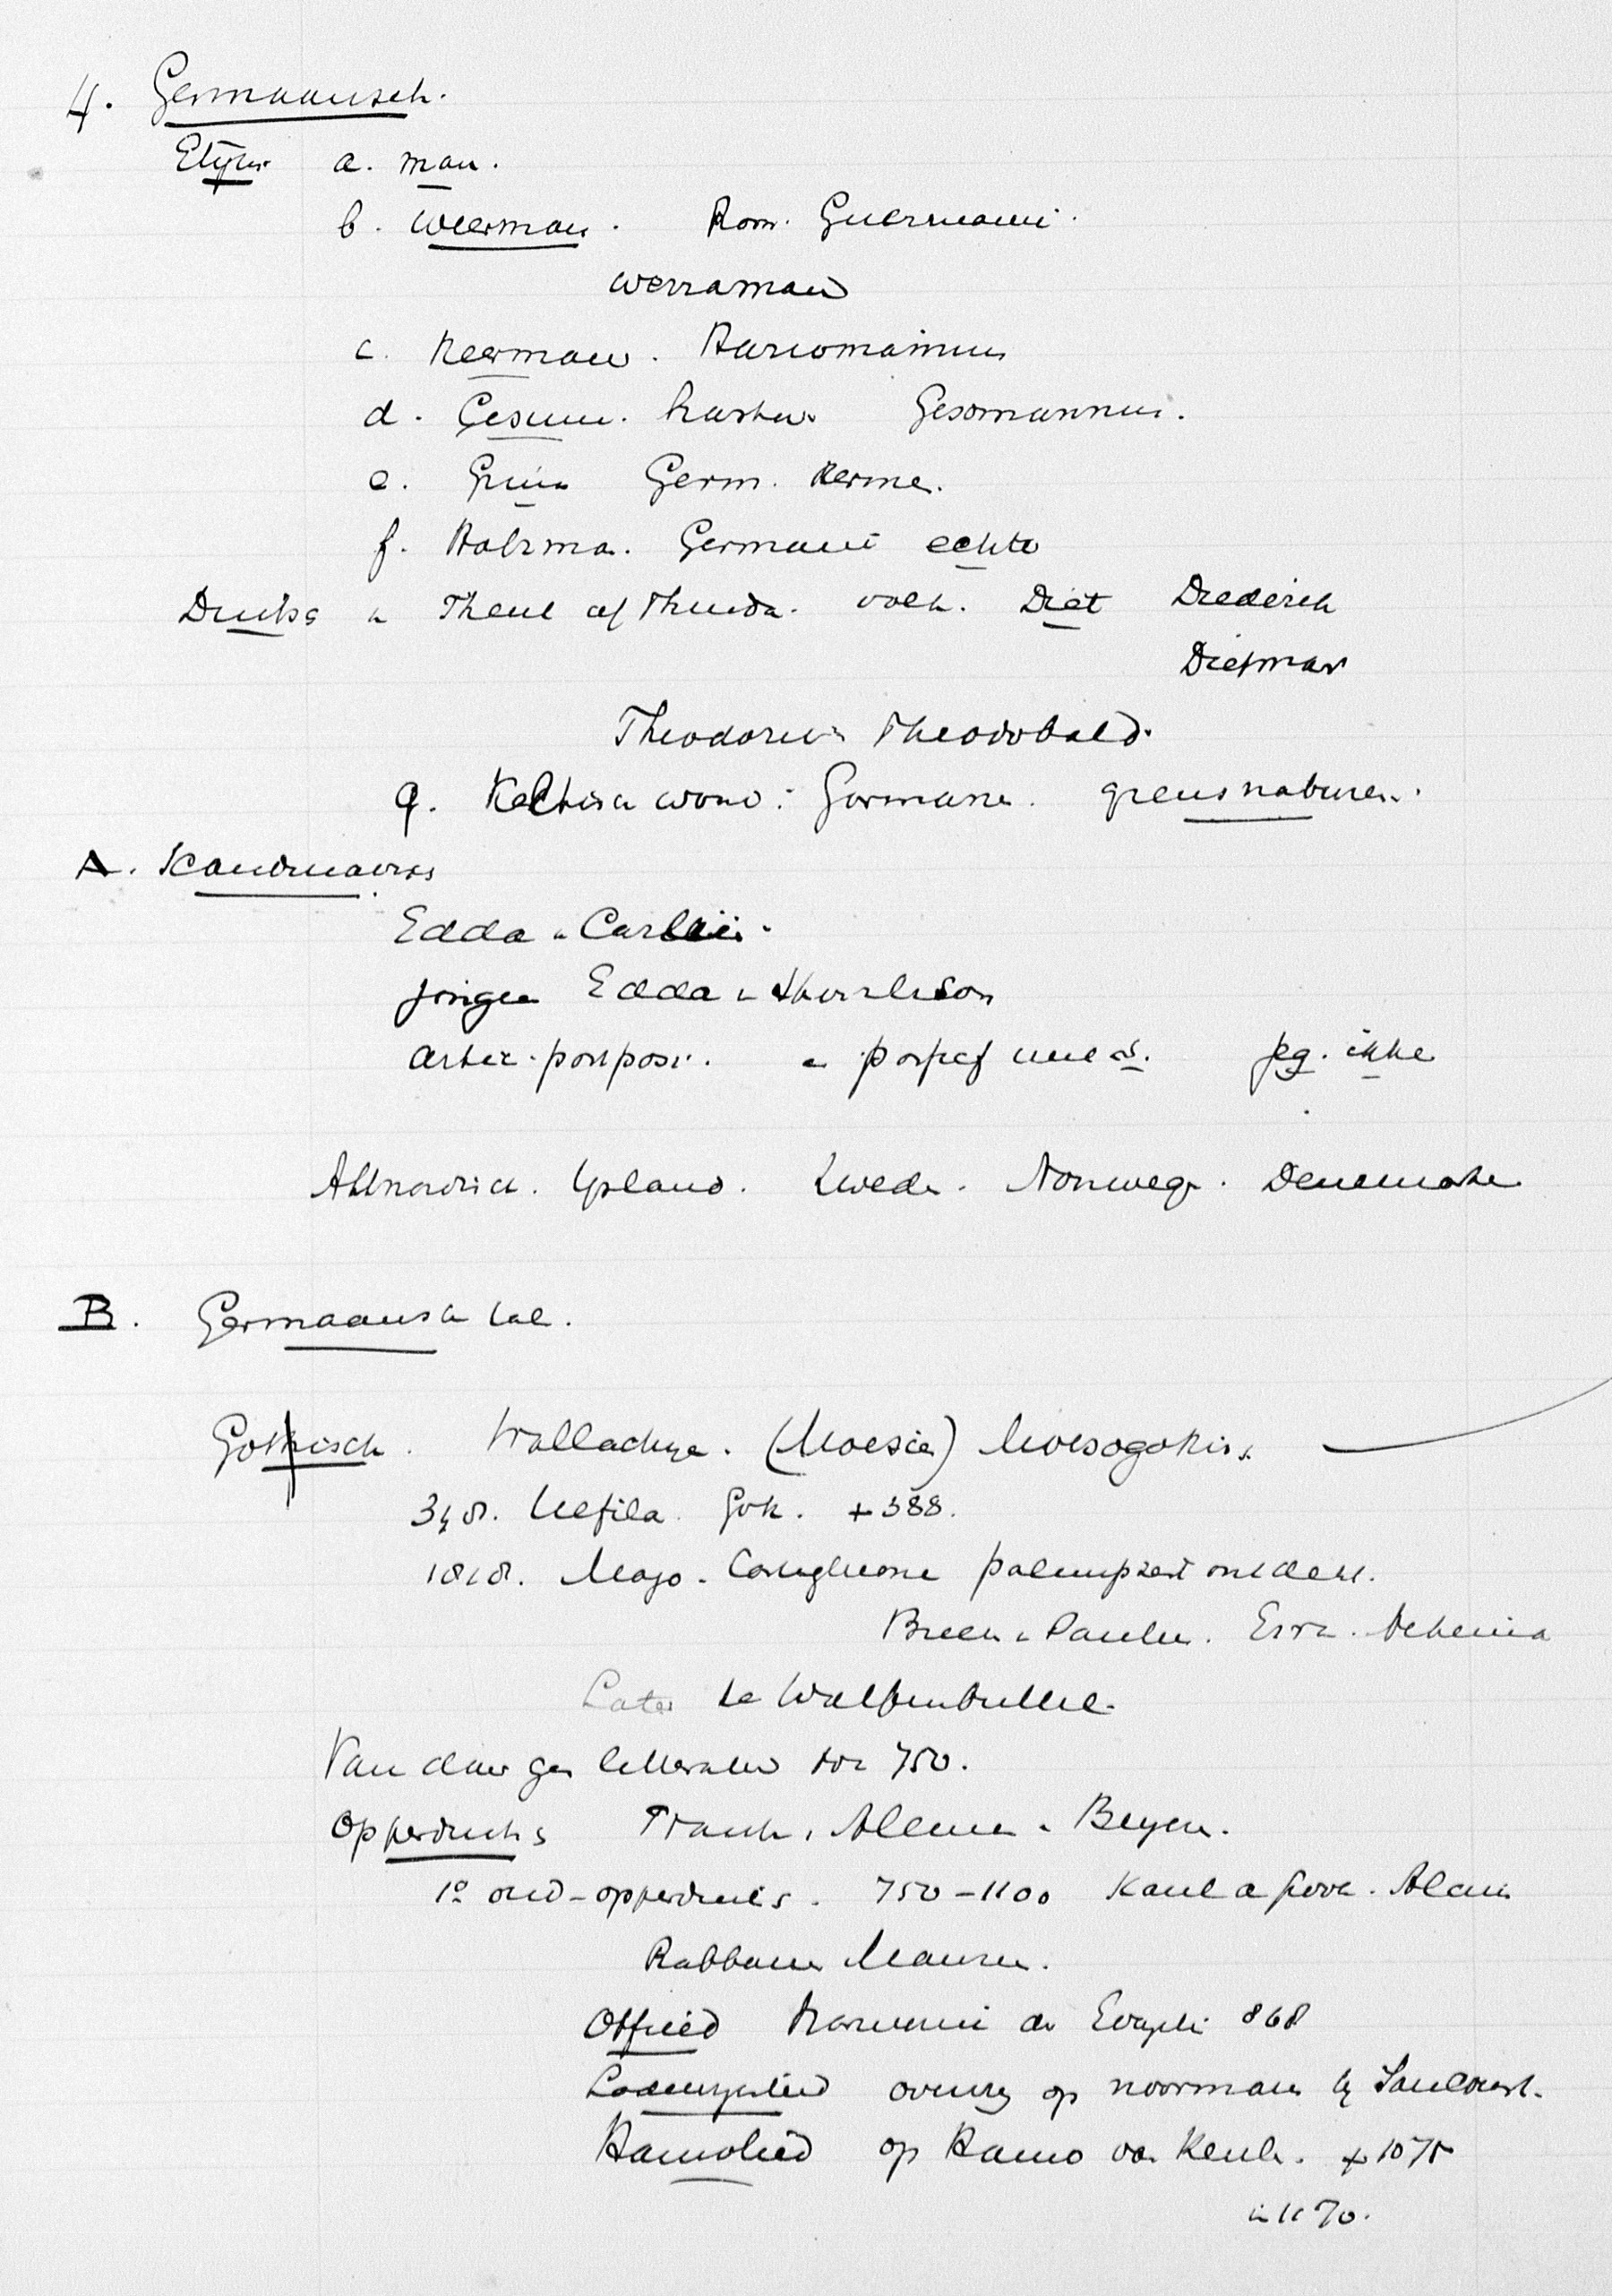 4. Germaansch.
Etym a. man.
b. weerman. Rom. Guermani.
werraman
c. Heerman. Hariomannus
d. Gesum. Gesomannus.
e. Grim Germ. Herme.
f. Holzma. Germani echte
Duits Theut of Thuida. volk. Diet Diederik
Dietmar
Theodoric Theodobald.
g. Keltisch woord: Germane. grensnaburen.
A. Skandinavis
Edda
jonger Edda
artic. postposi. jeg. ikke
Altnordisch. Ysland. Zwede. Norwege. Denemarke
B. Germaansch tal.
Gothisch. Wallachye. (Moesie) Moesogothis.
348. Ulfila. Goth. +388.
1818. Majo. Castiglione palimpsest ontdekt.
Briev. Paulu. Esra. Nehemia
Later te Wolfenbuttel.
Van daar gen litteratuur tot 750.
Opperduits Frank, Aleman. Beyer.
1º oud-opperduits. 750-1100 Karel a Alcuin
Rabbanus Maurus.
Otfried Harmonie de Evangeli 868
Lodewyxlied overwg op noorman by Saucourt.
Hannolied op Hanno van Keul. +1075
in 1170.